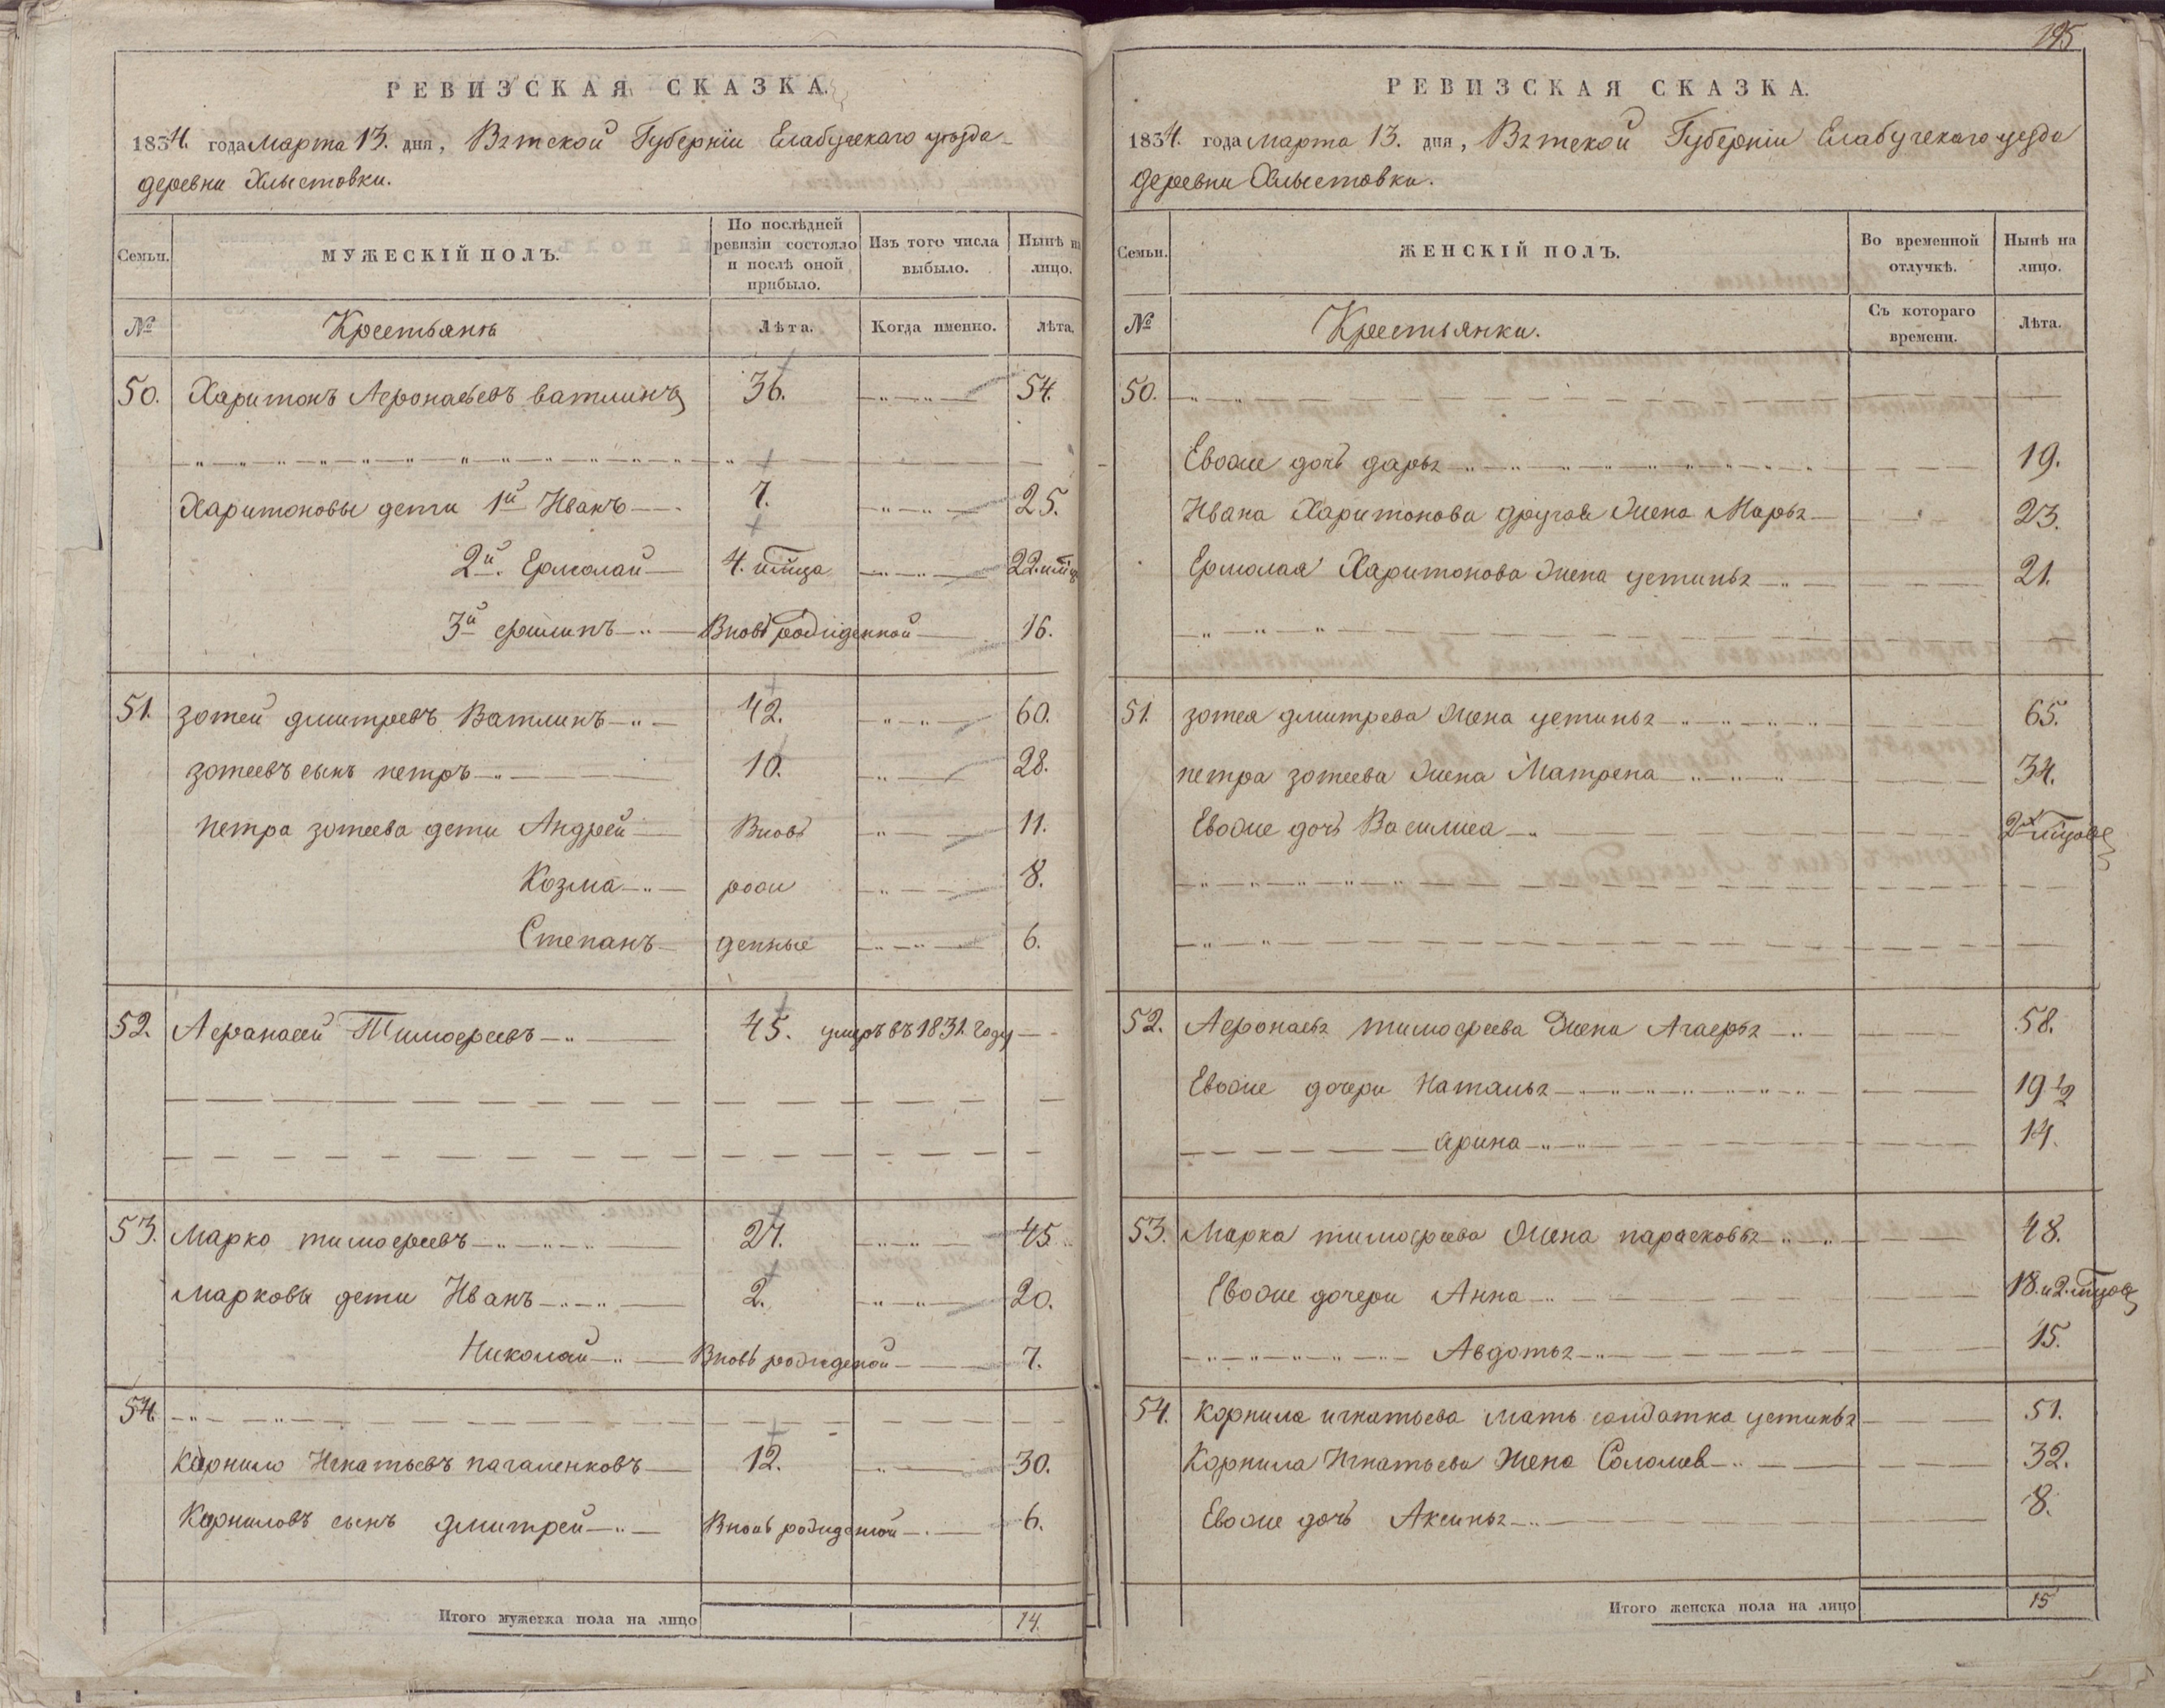 РЕВИЗСКАЯ СКАЗКА.
1834. года марта 13. дня, Вятской Губерніи Елабужскаго уѣзда
деревни Хлыстовки.
Семьи. МУЖЕСКІЙ ПОЛЪ. По послѣдней ревизіи состояло и послѣ оной прибыло. Изъ того числа выбыло. Нынѣ на лицо.
№ Крестьянъ Лѣта. Когда именно. лѣта.
50. Харитонъ Афонасьевъ ватлинъ 36. 54.
Харитоновы дети 1й Иванъ 7. 25.
2й. Ермолай 4. 22.
3й филипъ Вновь рожденной 16.
51. зотей дмитревъ Ватлинъ 42. 60.
зотеевъ сынъ петръ 10. 28.
петра зотеева дети Андрей Вновь 11.
Козма рож 8.
Степанъ денные 6.
52. Афанасей Тимофеевъ 45. умеръ въ 1831. году
53. Марко тимофеевъ 27. 45.
Марковы дети Иванъ 2. 20.
Николай Вновь рожденой 7.
54.
Корнило Игнатьевъ пагаленковъ 12. 30.
Корниловъ сынъ дмитрей Вновь рожденой 6.
Итого мужеска пола на лицо 14.
195
РЕВИЗСКАЯ СКАЗКА.
1834. года марта 13. дня, Вятской Губерніи Елабужскаго уезда
деревни Хлыстовки.
Семьи. ЖЕНСКІЙ ПОЛЪ. Во временной отлучкѣ. Нынѣ на лицо.
№ Крестьянки. Съ котораго времени. Лѣта.
50.
Евоже дочь дарья 19.
Ивана Харитонова другая жена Марья 23.
Ермолая Харитонова жена устинья 21.
51. зотея дмитрева жена устинья 65.
петра зотеева жена Матрена 34.
Евоже дочь Василиса 2х
52. Афонасья тимофеева жена Агафья 58.
Евоже дочери Наталья 19 1/2
Арина 14.
53. Марка тимофеева жена парасковья 48.
Евоже дочери Анна 18. и 2.
Авдотья 15.
54. Корнила игнатьева мать солдатка устинья 51.
Корнила Игнатьева жена Соломея 32.
Евоже дочь Аксинья 8.
Итого женска пола на лицо 15